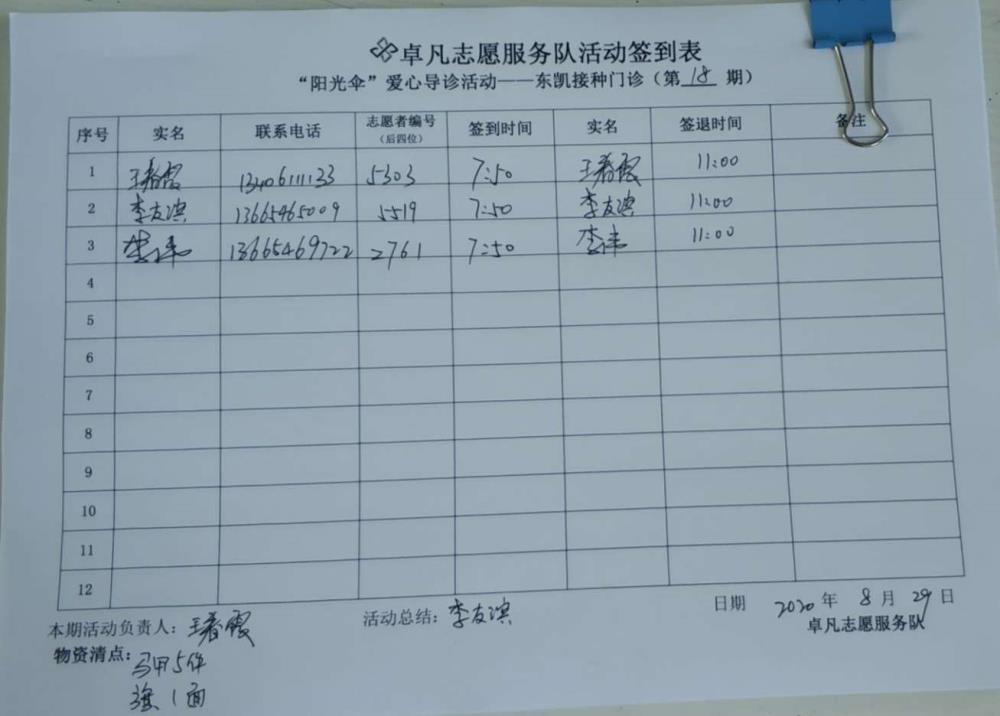 卓凡志愿服务队活动签到表
“阳光伞”爱心导诊活动——东凯接种门诊（第18期）
序号 实名 联系电话 志愿者编号（后四位） 签到时间 实名 签退时间 备注
1 王春霞 13406111133 5303 7:50 王春霞 11:00
2 李友滨 13665465009 5519 7:50 李友滨 11:00
3 李伟 13665469722 2761 7:50 李伟 11:00
4
5
6
7
8
9
10
11
12
本期活动负责人：王春霞 活动总结：李友滨 日期 2020年8月29日
卓凡志愿服务队
物资清点：马甲5件
旗1面